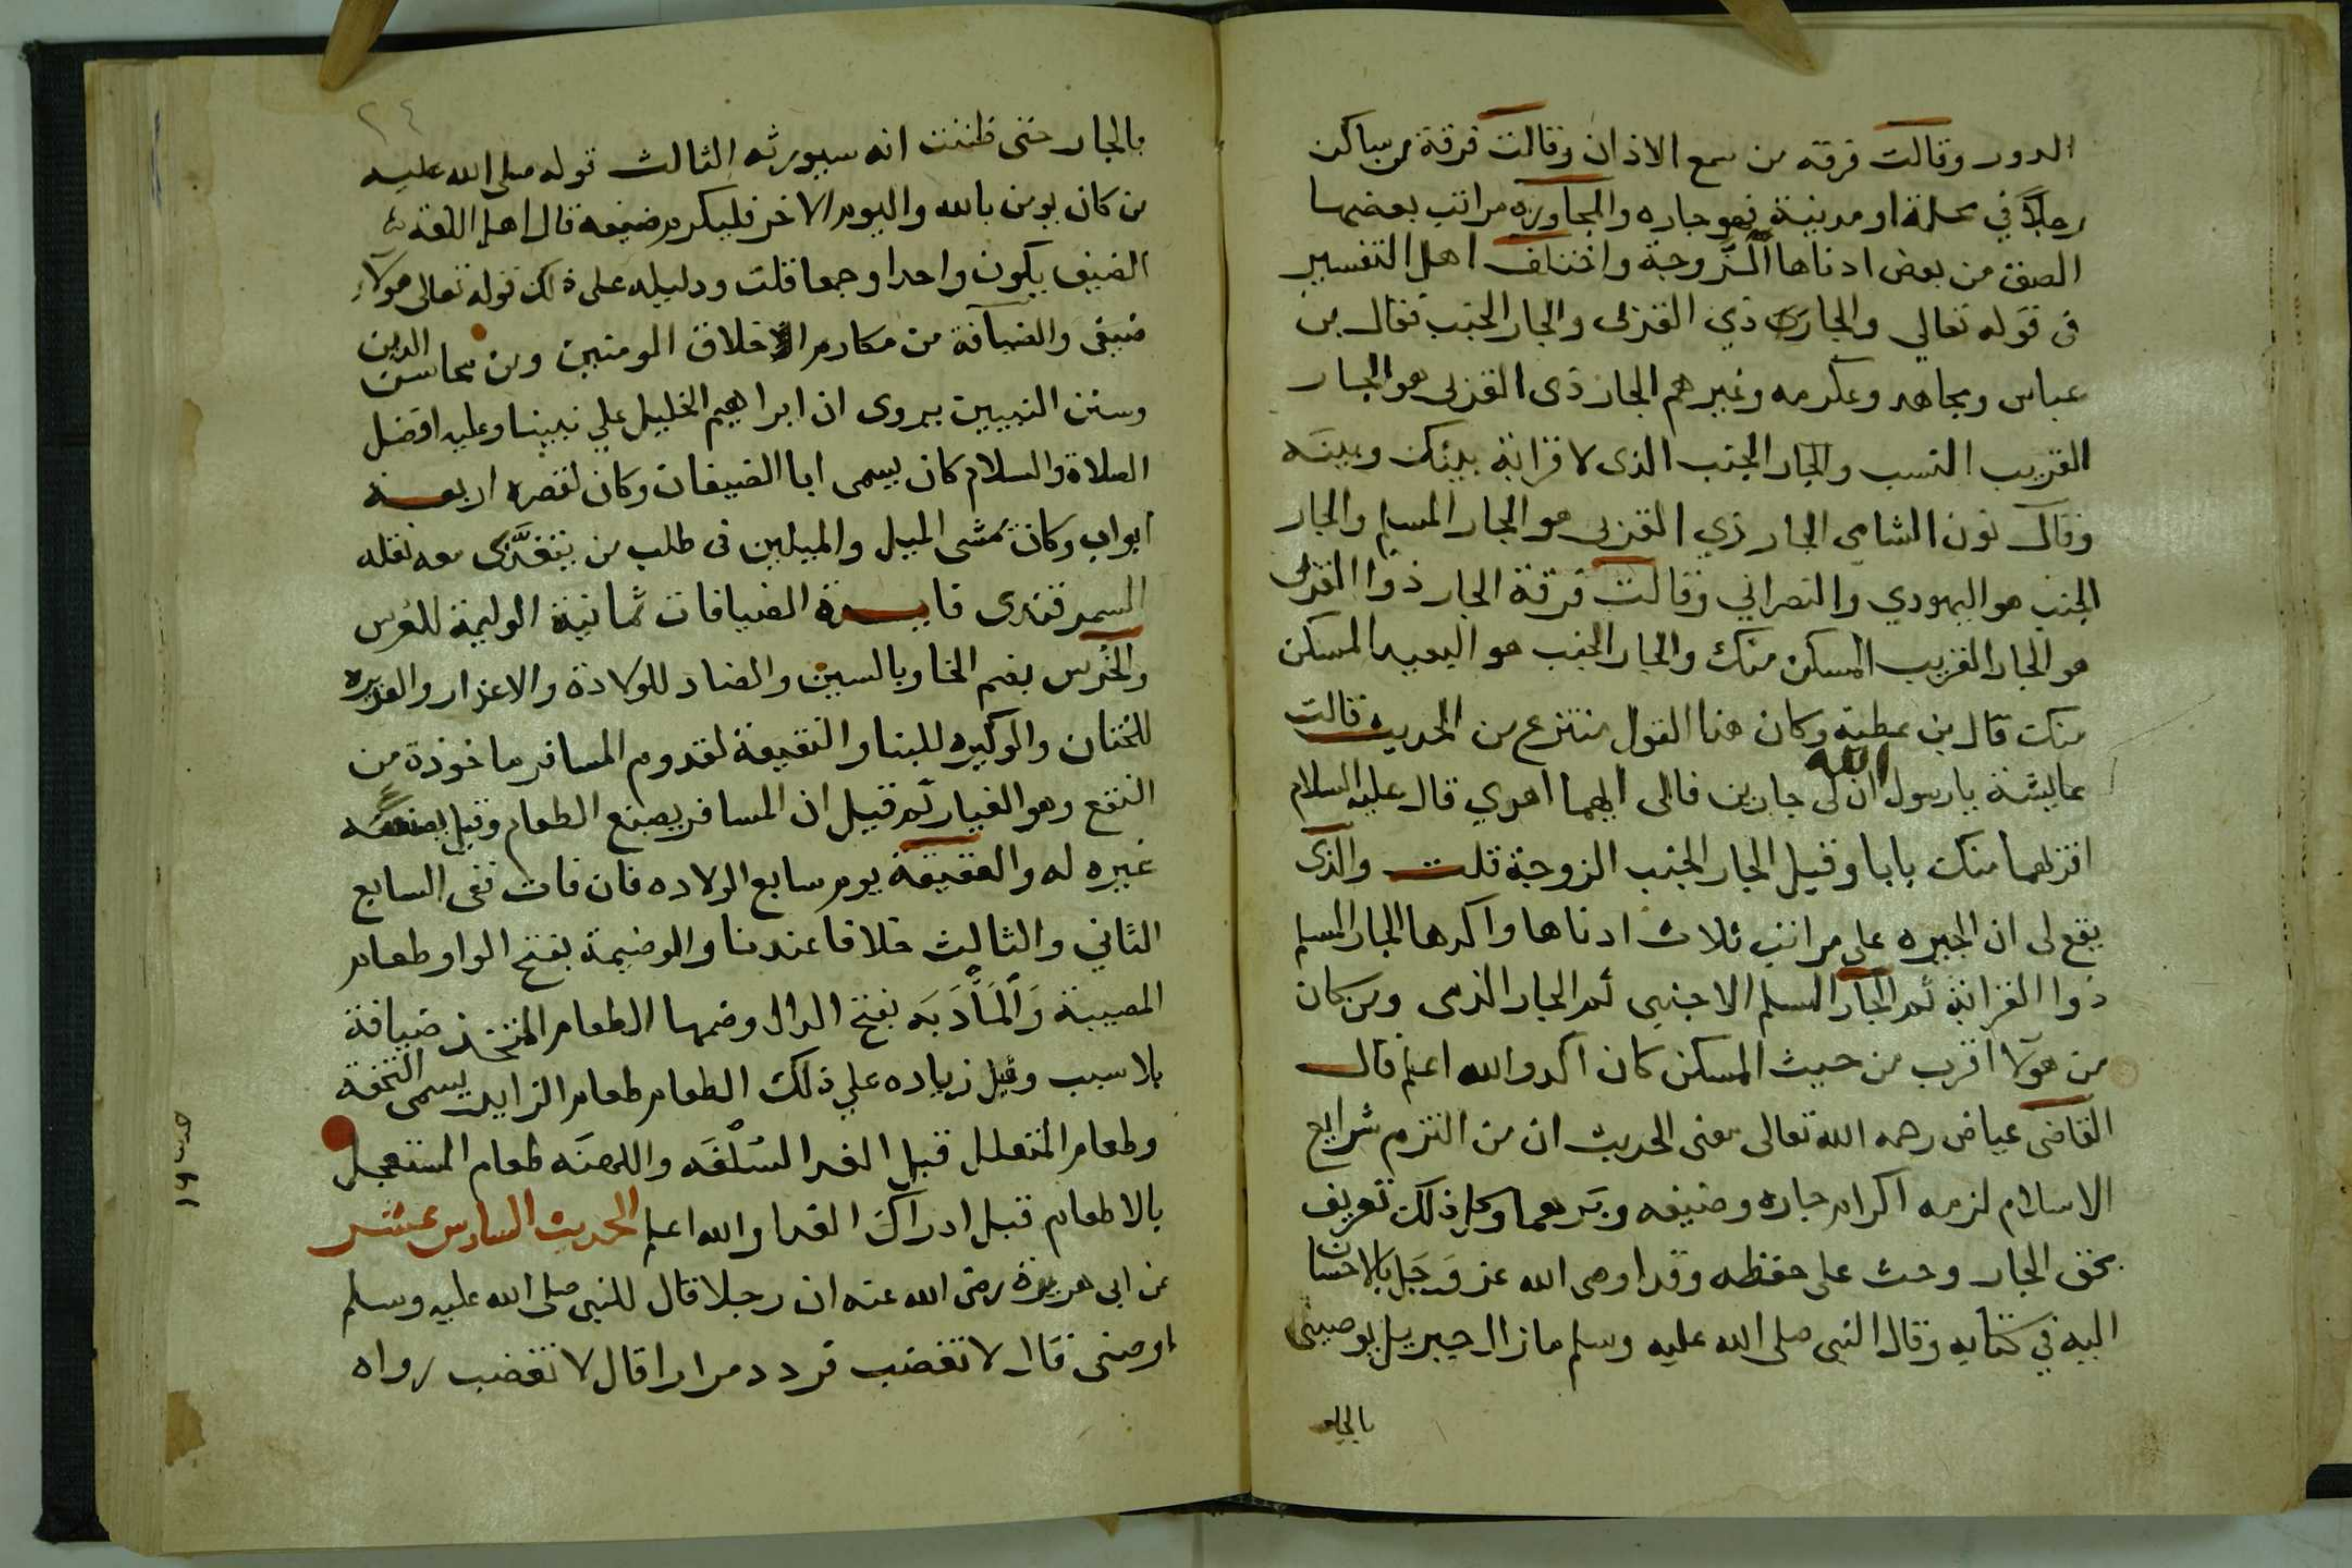 الدور وقالت فرقه من سمع الاذان وقالت فرقة من ساكن
رجلا في محلة او مدينة فهو جاره والمجاوره مراتب بعضها
الصق من بعض ادناها الزوجة واختلف اهل التفسير
فى قوله تعالي والجار ذي القربى والجار الجنب فقال بن
عباس ومجاهد وعكرمه وغيرهم الجار ذى القربى هو الجار
القريب النسب والجار الجنب الذى لا قرابة بينك وبينه
وقال نون الشامى الجار ذي القربى هو الجار المسلم والجار
الجنب هو اليهودي والنصراني وقالت فرقة الجار ذوا القربى
هو الجار القريب المسكن منك والجار الجنب هو البعيد المسكن
منك قال بن عطية وكان هذا القول منتزع من الحديث قالت
عايشة يا رسول الله ان لى جارين فالى ايهما اهدي قال عليه السلام
اقربهما منك بابا وقيل الجار الجنب الزوجة قلت والذى
يقع لى ان الجيره على مراتب ثلاث ادناها واكدها الجار المسلم
ذوا القرابة ثم الجار المسلم الاجنبى ثم الجار الذمى ومن كان
من هولا اقرب من حيث المسكن كان اكد والله اعلم قال
القاضى عياض رحمه الله تعالى معنى الحديث ان من التزم شرايع
الاسلام لزمه اكرام جاره وضيفه وبرهما وكل ذلك تعريف
بحق الجار وحث على حفظه وقد اوصى الله عز وجل بالاحسان
اليه في كتابه وقال النبى صلى الله عليه وسلم ما زال جبريل يوصينى
بالجار
٢٤
بالجار حتى ظننت انه سيورثه الثالث قوله صلى الله عليه
من كان يومن بالله واليوم الاخر فليكرم ضيفه قال اهل اللغة
الضيف يكون واحدا وجمعا قلت ودليله على ذلك قوله تعالى هولاء
ضيفى والضيافة من مكارم الاخلاق المومنين ومن محاسن الدين
وسنن النبيين يروى ان ابراهيم الخليل علي نبينا وعليه افضل
الصلاة والسلام كان يسمى ابا الضيفان وكان لقصره اربعة
ابواب وكان يمشى الميل والميلين فى طلب من يتغدى معه نقله
السمرقندى فايدة الضيافات ثمانية الوليمة للعرس
والخرس بضم الخا وبالسين والصاد للولادة والاعذار والعذيره
للختان والوكيره للبنا والنقيعة لقدوم المسافر ماخوذة من
النقع وهو الغبار ثم قيل ان المسافر يصنع الطعام وقيل يصنعه
غيره له والعقيقة يوم سابع الولاده فان فات ففى السابع
الثاني والثالث خلافا عندنا والوضيمة بفتح الواو طعام
المصيبة والمأدبه بفتح الدال وضمها الطعام المتخذ ضيافة
بلا سبب وقيل زياده علي ذلك الطعام طعام الزاير يسمى التحفه
وطعام المتعلل قبل الغدا السلفه واللهنه طعام المستعجل
بالاطعام قبل ادراك الغدا والله اعلم الحديث السادس عشر
عن ابى هريرة رضى الله عنه ان رجلا قال للنبى صلى الله عليه وسلم
اوصنى قال لا تغضب فردد مرارا قال لا تغضب رواه
حديث ١٦